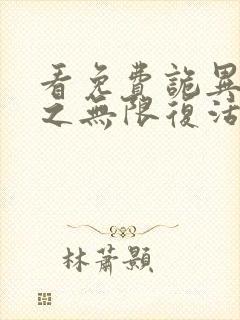 看免費詭異
之無限復活
林蕭顥